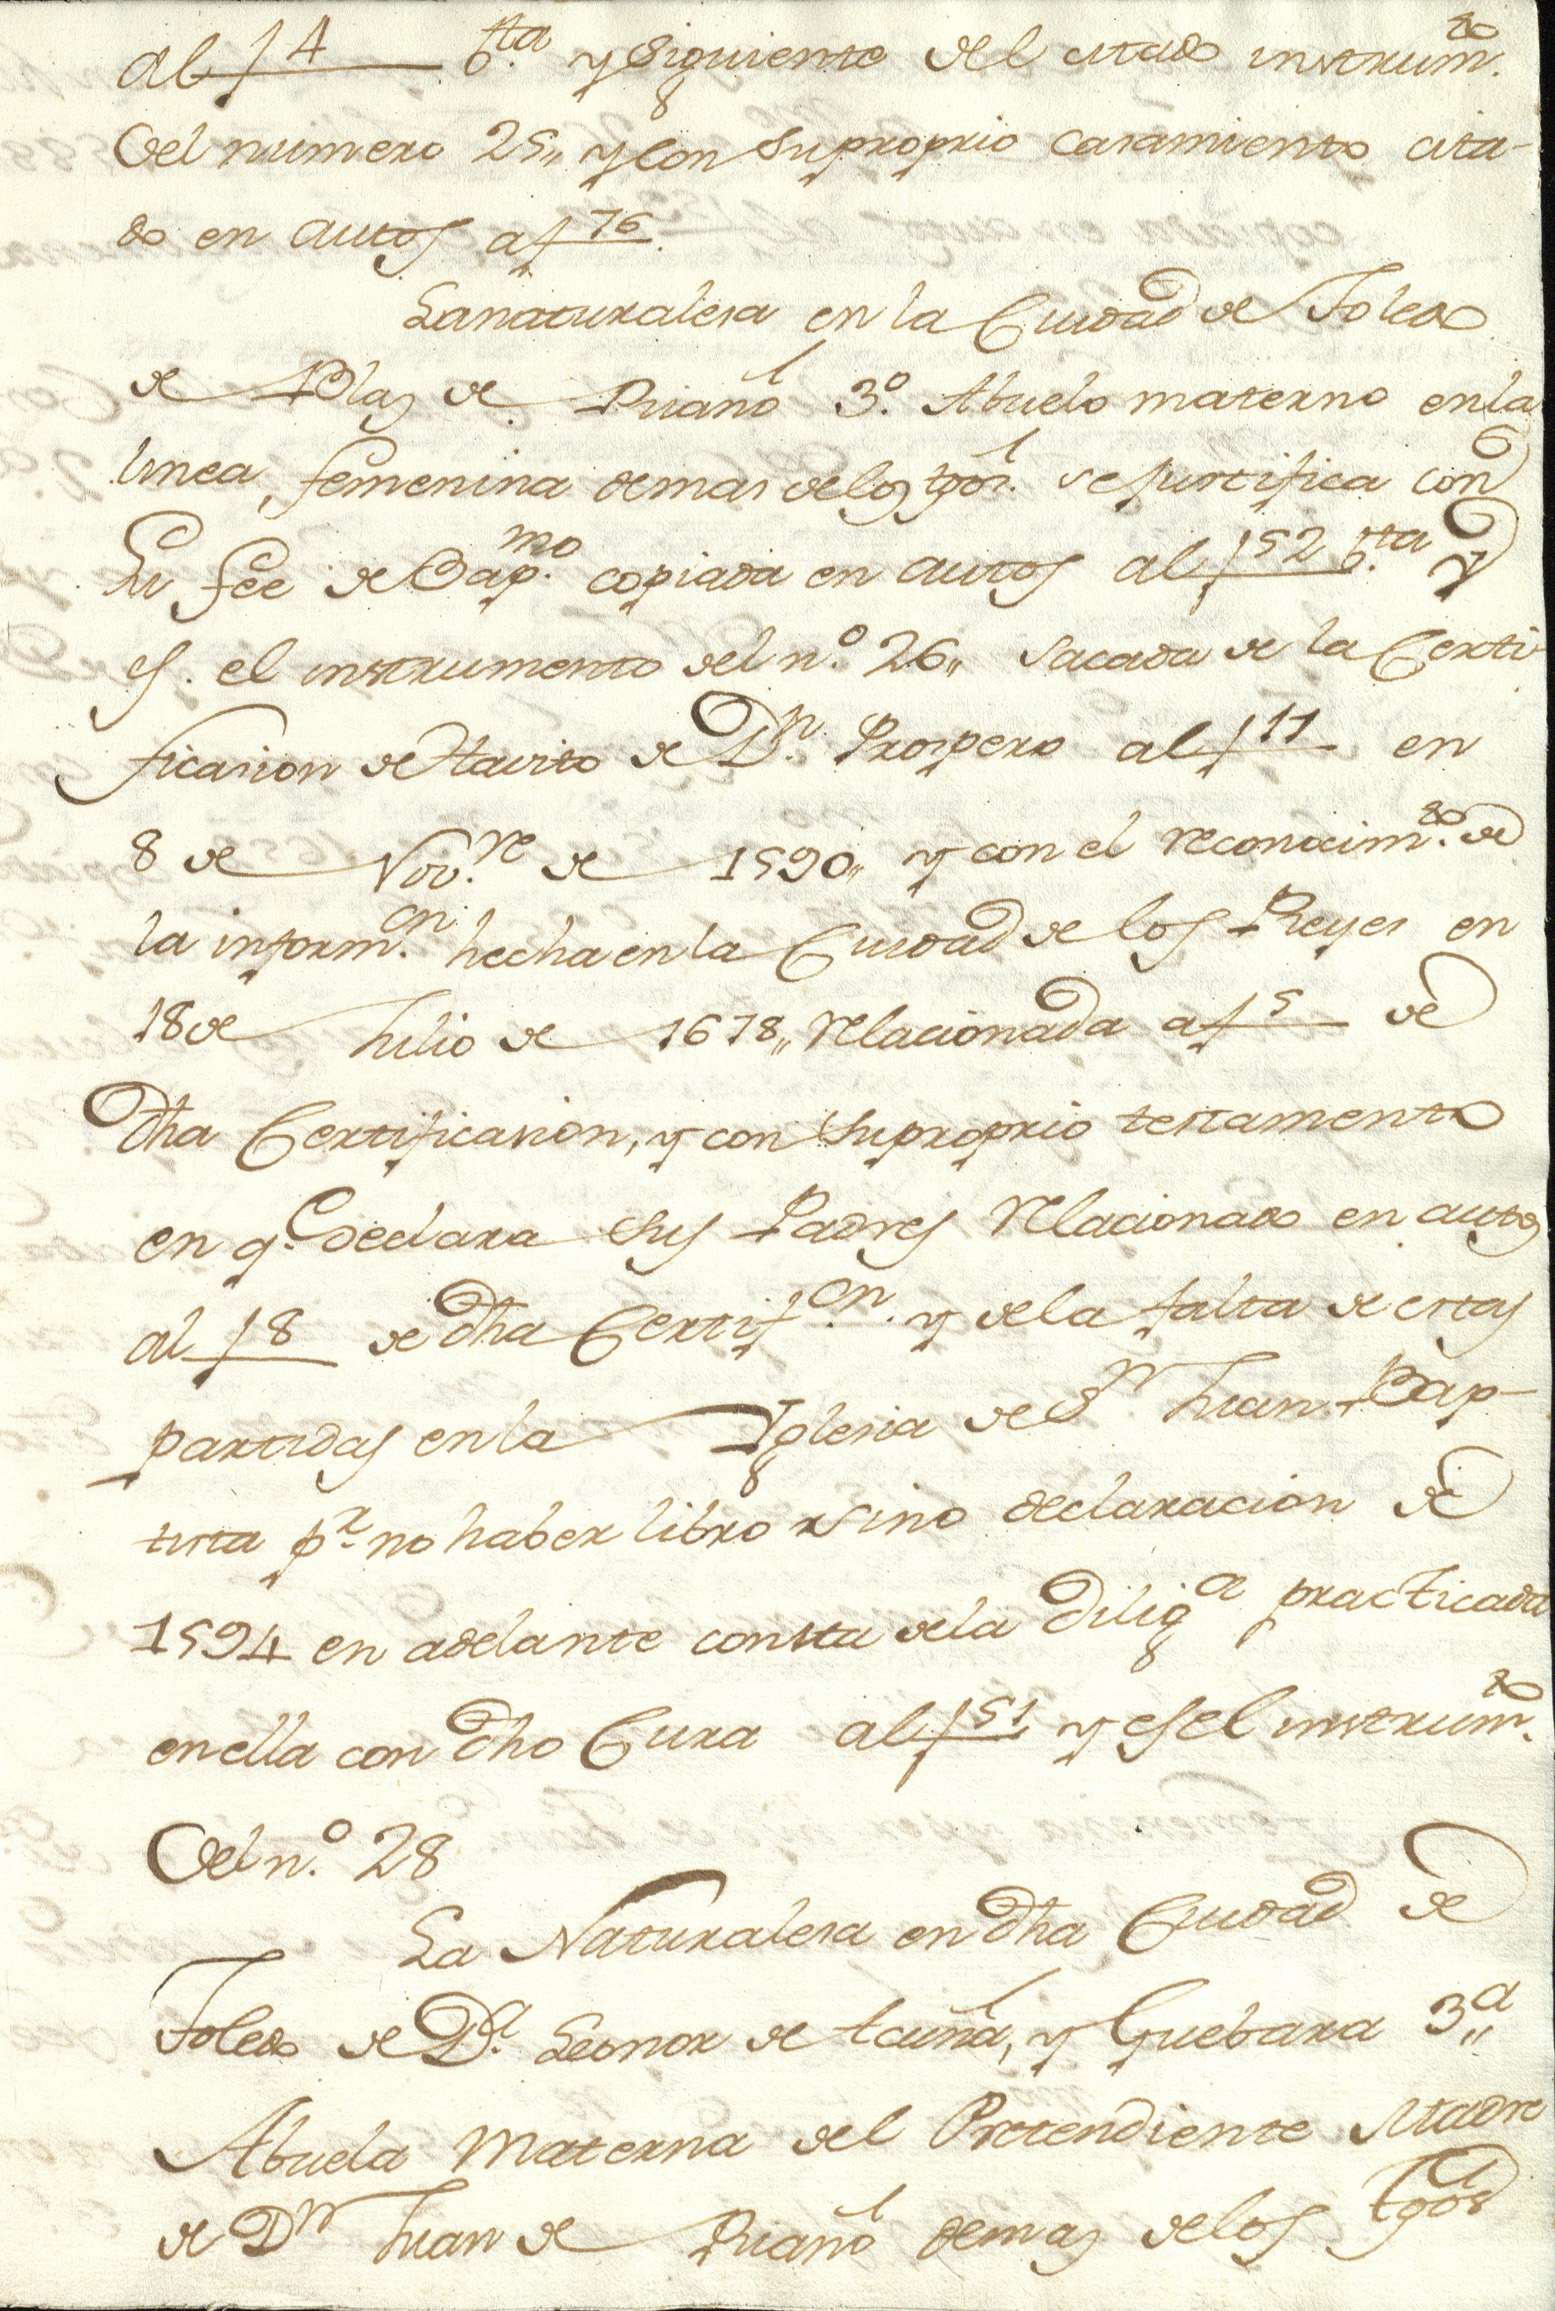 al f 4 bta y siguiente del citado instrumto
del numero 25,, y con su proprio casamiento cita-
do en autos a f 76.
La naturalesa en la Ciudad de Toledo
de Blas de Riaño 3º. Abuelo materno en la
linea femenina demas de los tgos. se justifica con
su fee de Bapmo. copiada en autos al f 52 bta y
es. el instrumento del nº. 26,, sacada de la Certi-
ficasion de Havito de Dn. Prospero al f 11 en
8 de Novre. de 1590,, y con el reconocimto. de
la informon. hecha en la Ciudad de los Reyes en
18 de Julio de 1678,, relacionada a f 5 de
dha Certificasion, y con su proprio testamento
en qe. declara sus Padres relacionado en autos
al f 8 de dha Certifon. y de la falta de estas
partidas en la Iglesia de Sn. Juan Bap-
tista pr. no haber libro sino declaracion de
1594 en adelante consta de la diliga practicada
en ella con dho Cura al f 51 y es el instrumto.
del nº. 28
La Naturalesa en dha Ciudad de
Toledo de Da. Leonor de Acuña, y Guebara 3a,,
Abuela Materna del Pretendiente Madre
de Dn Juan de Riaño demas de los tgos